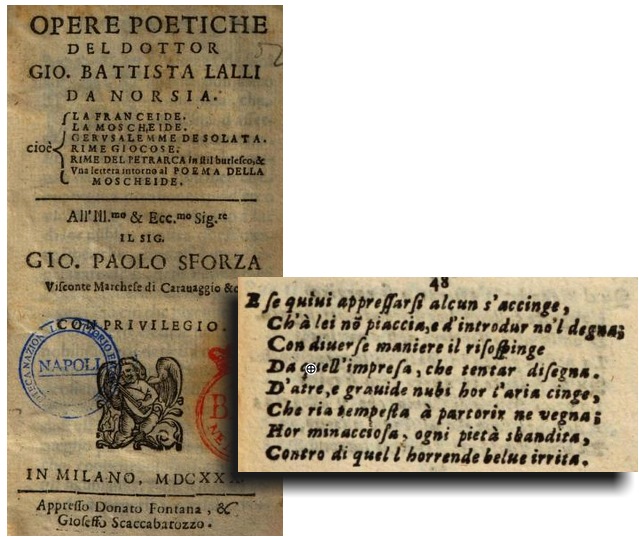 OPERE POETICHE
DEL DOTTOR
GIO. BATTISTA LALLI
DA NORSIA.
cioè
LA FRANCEIDE.
LA MOSCHEIDE.
GERVSALEMME DESOLATA.
RIME GIOCOSE.
RIME DEL PETRARCA in ſtil burleſco,&
Vna lettera intorno al POEMA DELLA
MOSCHEIDE.
All'Ill.mo & Ecc.mo Sig.re
IL SIG.
GIO. PAOLO SFORZA
Viſconte Marcheſe di Carauaggio &c
CON PRIVILEGIO.
NAPOLI
IN MILANO, MDCXX
Appreſſo Donato Fontana, &
Gioſeffo Scaccabarozzo.
48
E ſe quiui appreſſarſi alcun s'accinge,
Ch'à lei nõ piaccia,e d'introdur no'l degna;
Con diuerſe maniere il riſoſpinge
Da quell'impreſa, che tentar diſegna.
D'atre,e grauide nubi hor l'aria cinge,
Che ria tempeſta à partorir ne vegna;
Hor minaccioſa, ogni pietà sbandita,
Contro di quel l'horrende belue irrita.